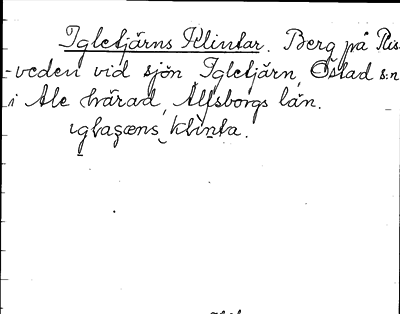 Igletjärns Klintar. Berg på Ris-
-veden vid sjön Igletjärn, Östad s:n
i Ale härad, Älfsborgs län.
ıglaşæns klınta.